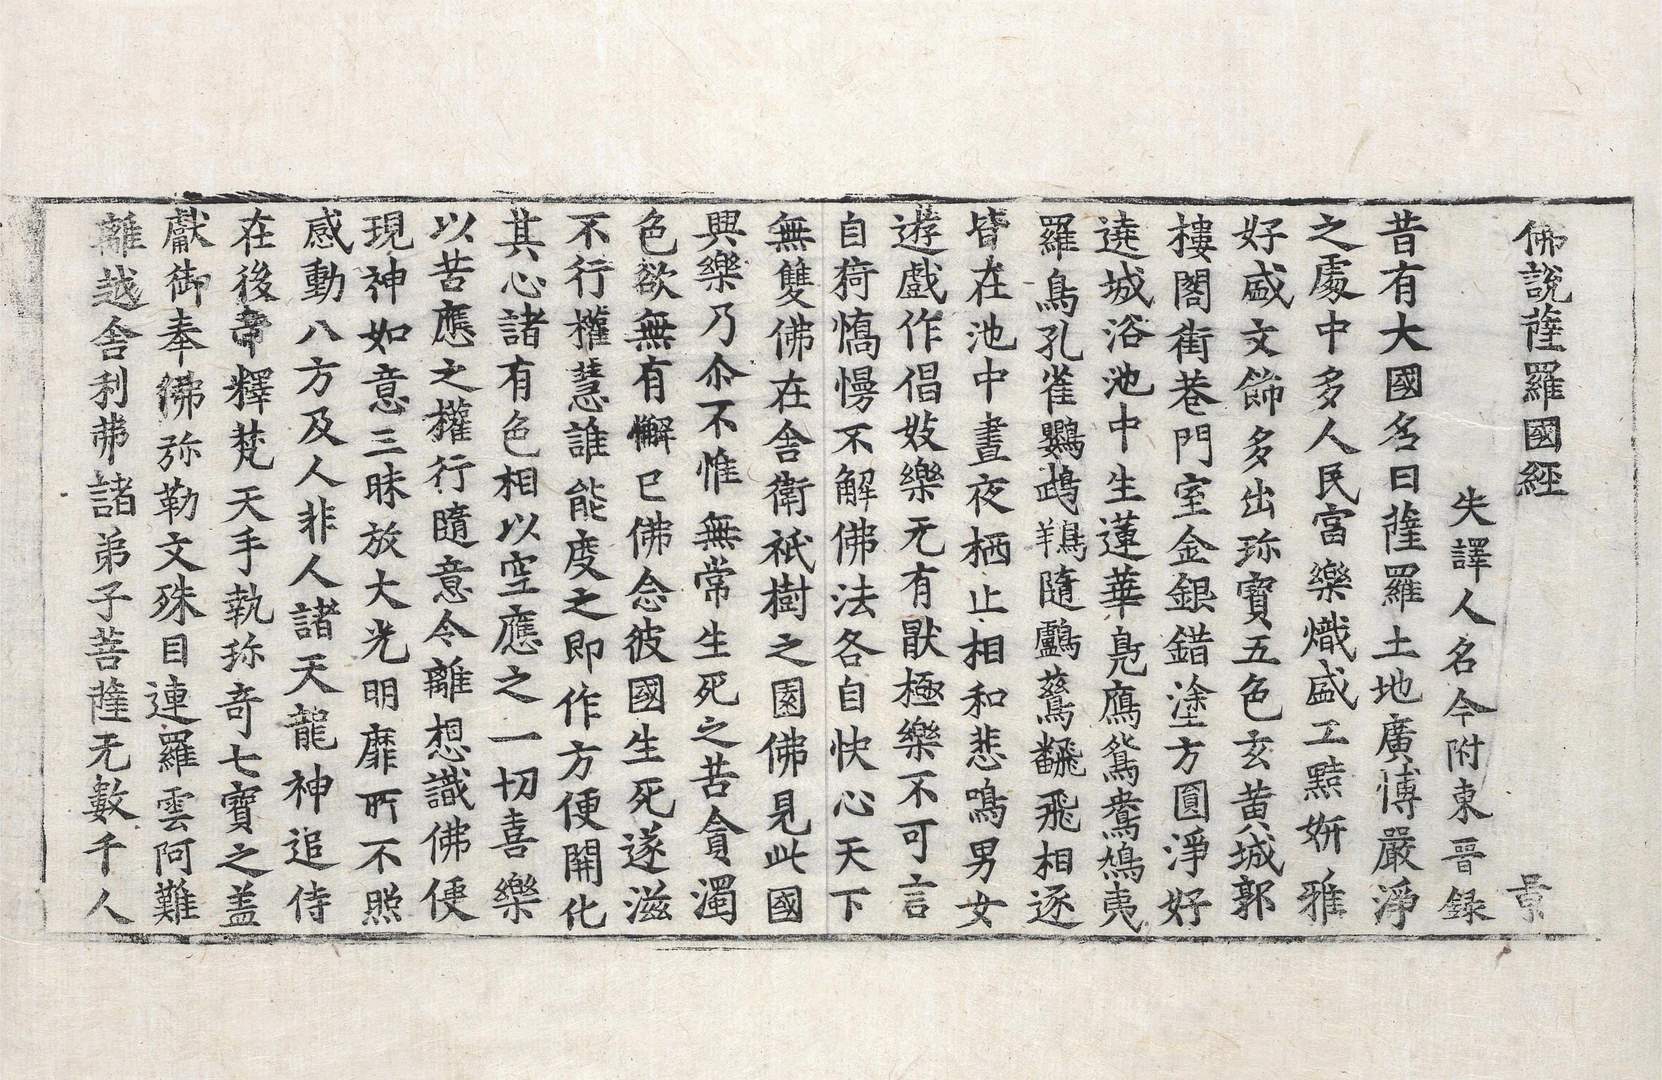 佛說薩羅國經 景
失譯人名今附東晉錄
昔有大國名曰薩羅土地廣博嚴淨
之處中多人民富樂熾盛工黠姸雅
好盛文飾多出珎寶五色玄黃城郭
樓閣街巷門室金銀錯塗方圓淨好
遶城浴池中生蓮華鳧鴈鴛鴦鴆夷
羅鳥孔雀鸚鵡鶙隨鸕鶿飜飛相逐
皆在池中晝夜栖止相和悲鳴男女
遊戲作倡妓樂无有猒極樂不可言
自猗憍慢不解佛法各自快心天下
無雙佛在舍衛祇樹之園佛見此國
興樂乃尒不惟無常生死之苦貪濁
色欲無有懈已佛念彼國生死遂滋
不行權慧誰能度之即作方便開化
其心諸有色相以空應之一切喜樂
以苦應之權行隨意令離想識佛便
現神如意三昧放大光明靡所不照
感動八方及人非人諸天龍神追侍
在後帝釋梵天手執珎奇七寶之盖
獻御奉佛弥勒文殊目連羅雲阿難
離越舍利弗諸弟子菩薩无數千人